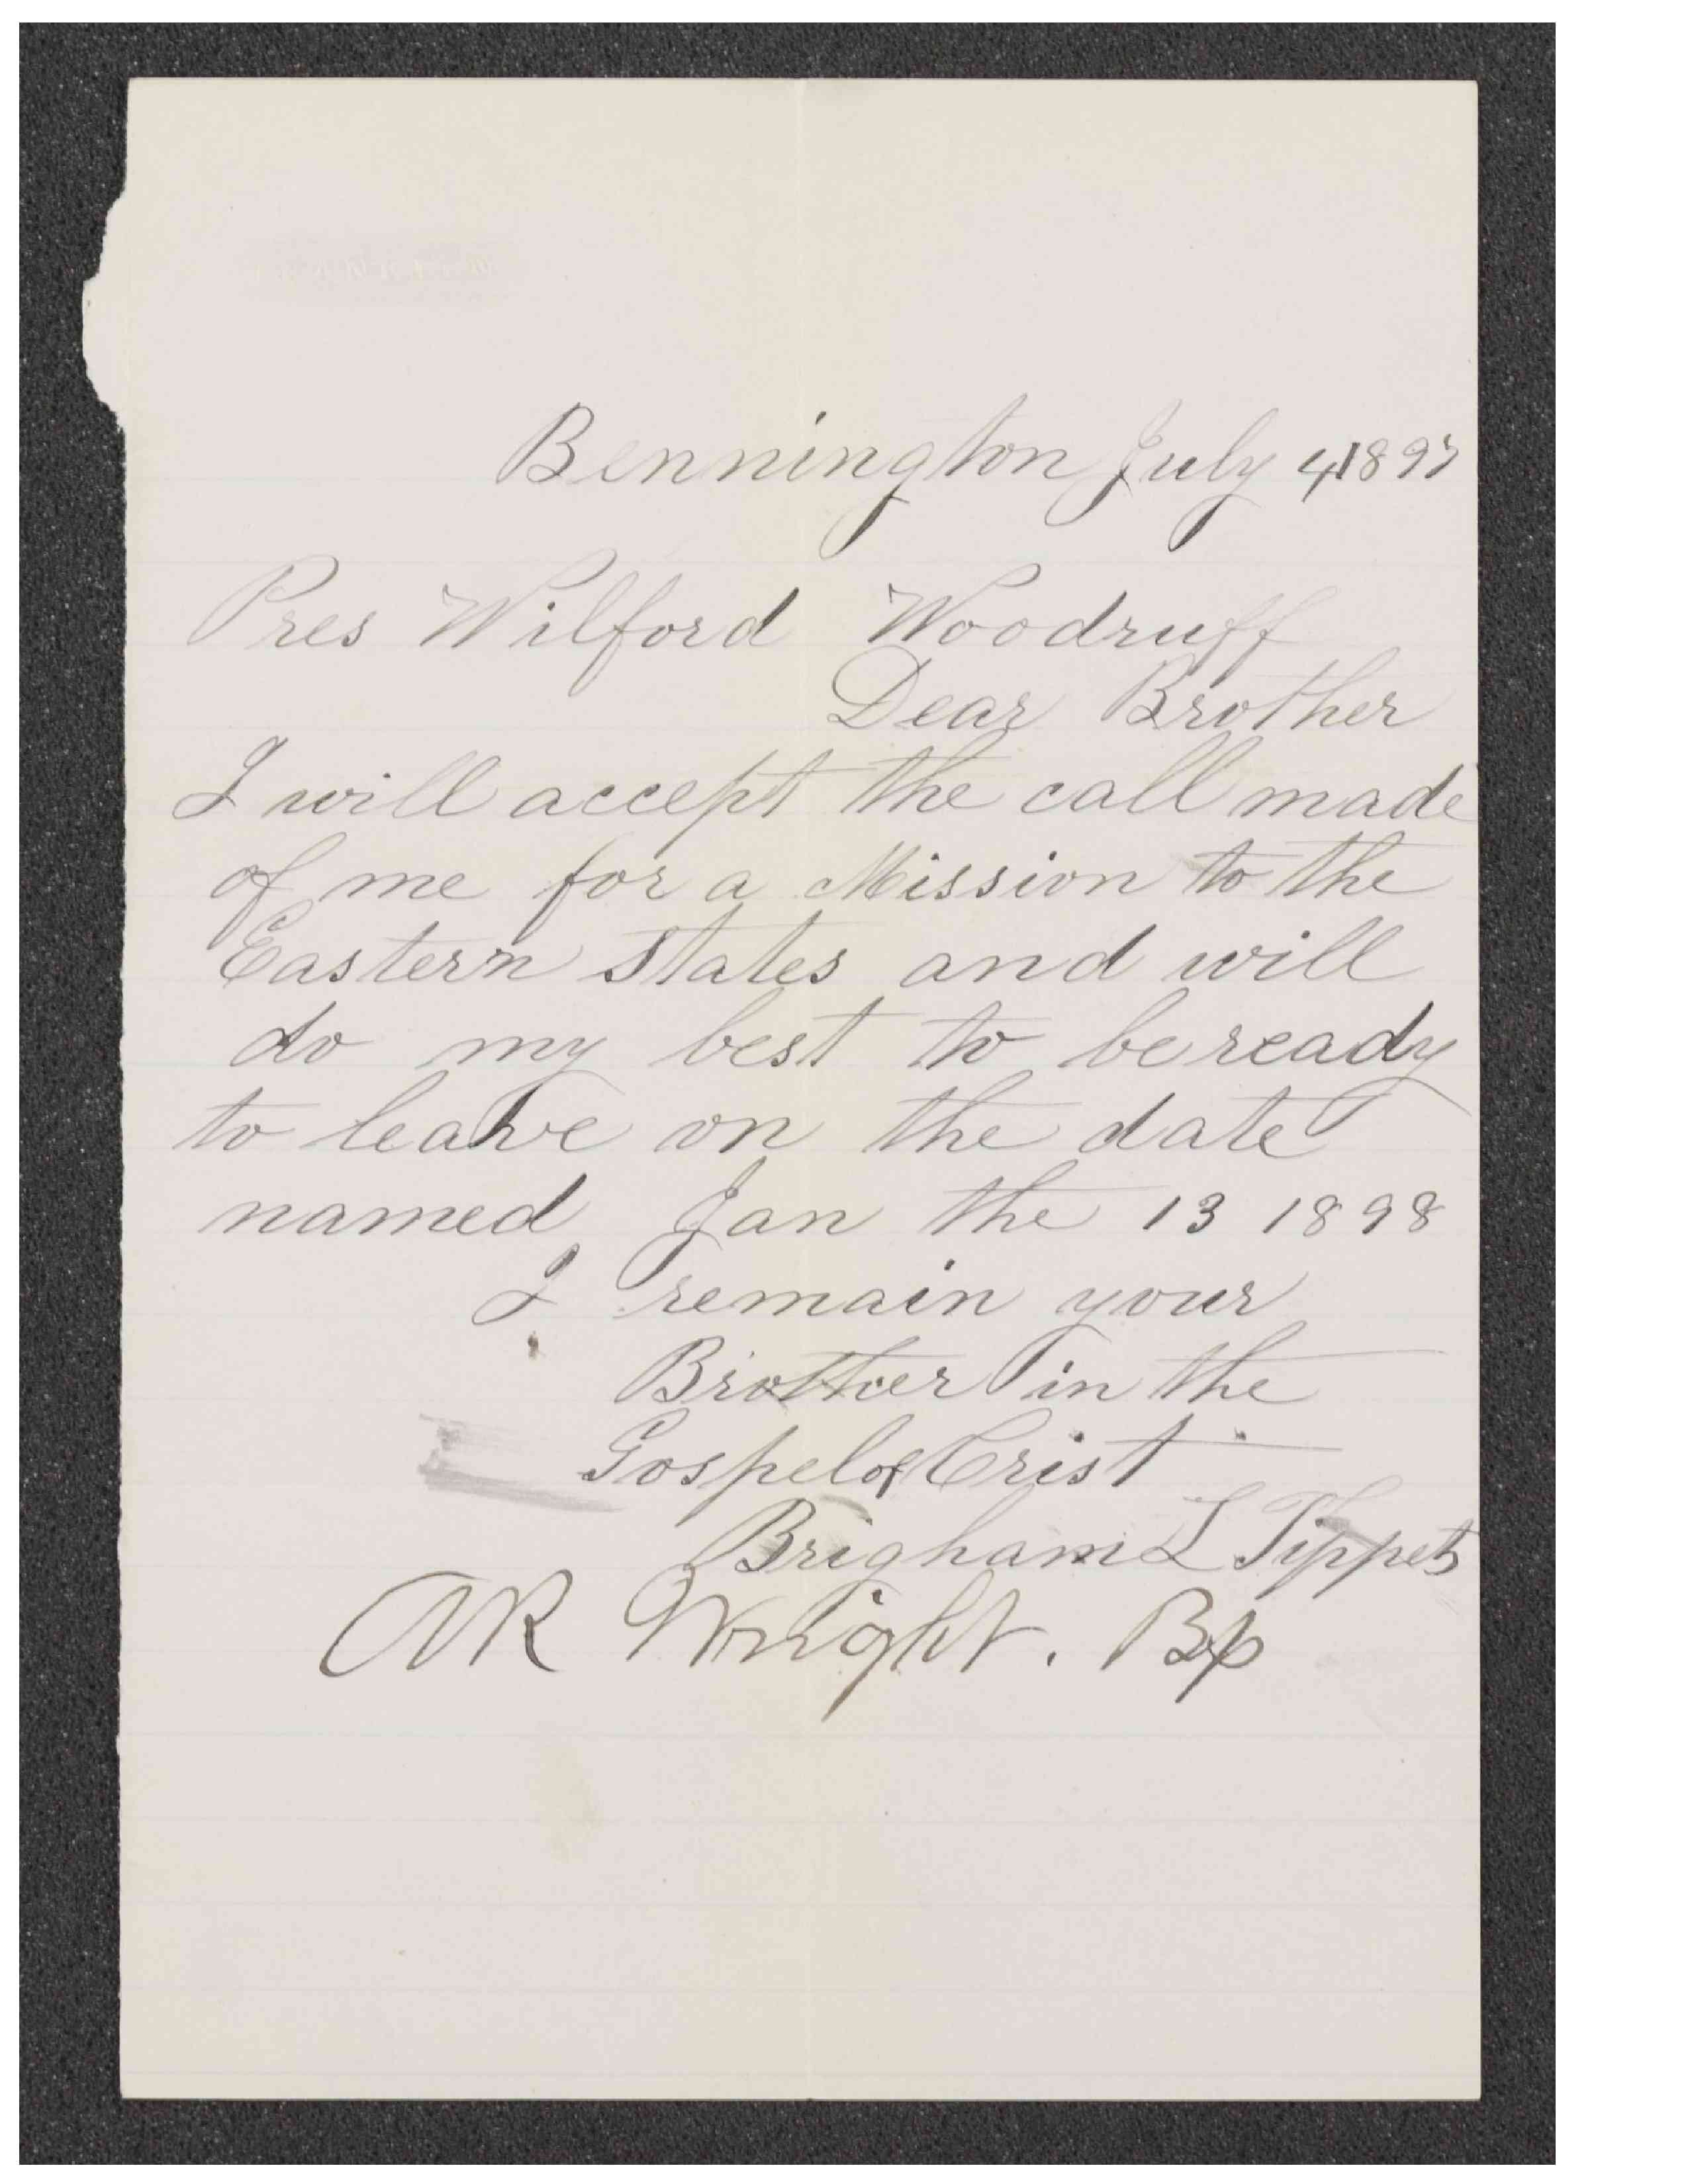 Bennington July 4 1897
Pres Wilford Woodruff
Dear Brother
I will accept the call made
of me for a Mission to the
Eastern States and will
do my best to be ready
to leave on the date
named Jan the 13 1898
I remain your
Brother in the
Gospel of Crist
Brigham L Tippets
AR Wright. Bp